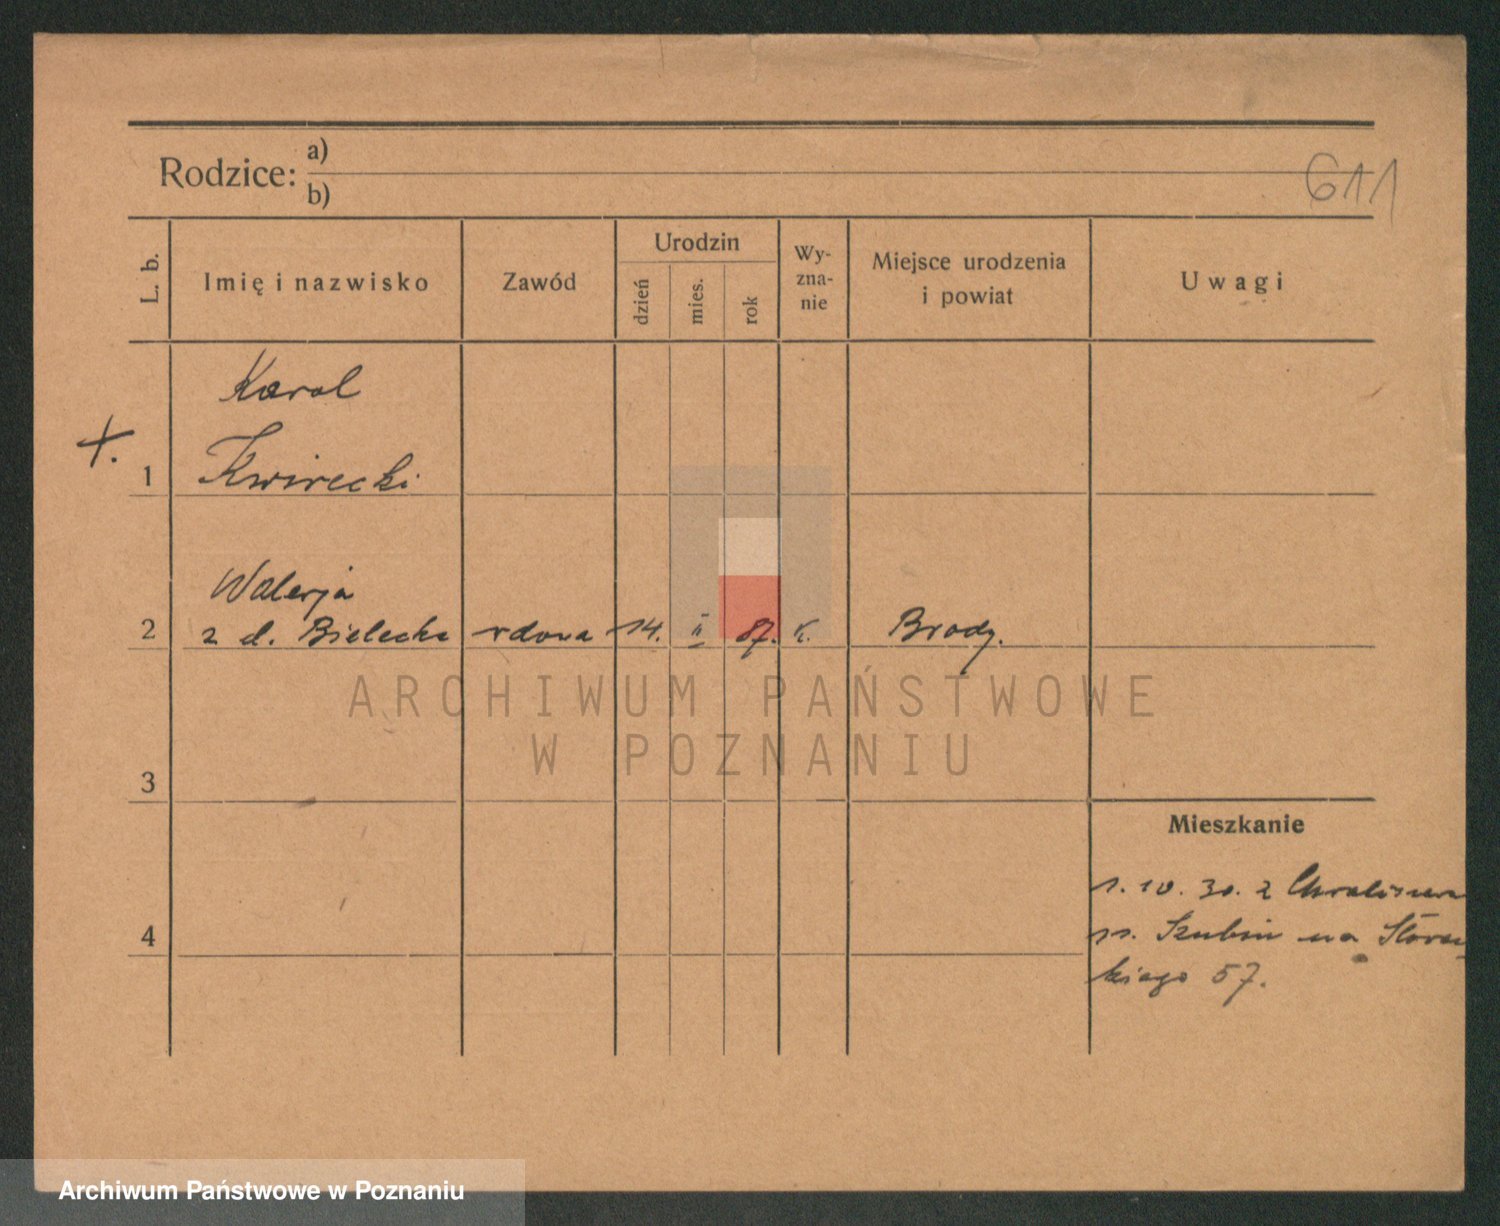 Rodzice: a)
b)
611
L. b.
Imię i nazwisko
Zawód
Urodzin
dzień
mies.
rok
Wy-
zna-
nie
Miejsce urodzenia
i powiat
Uwagi
Karol
+.
1 Kwirecki
Walerja
2 z d. Bielecka wdowa 14. II 87. k. Brody.
ARCHIWUM PAŃSTWOWE
W POZNANIU
3
Mieszkanie
1. 10. 30. z
4
11. Szubin na Słowac
kiego 57.
Archiwum Państwowe w Poznaniu